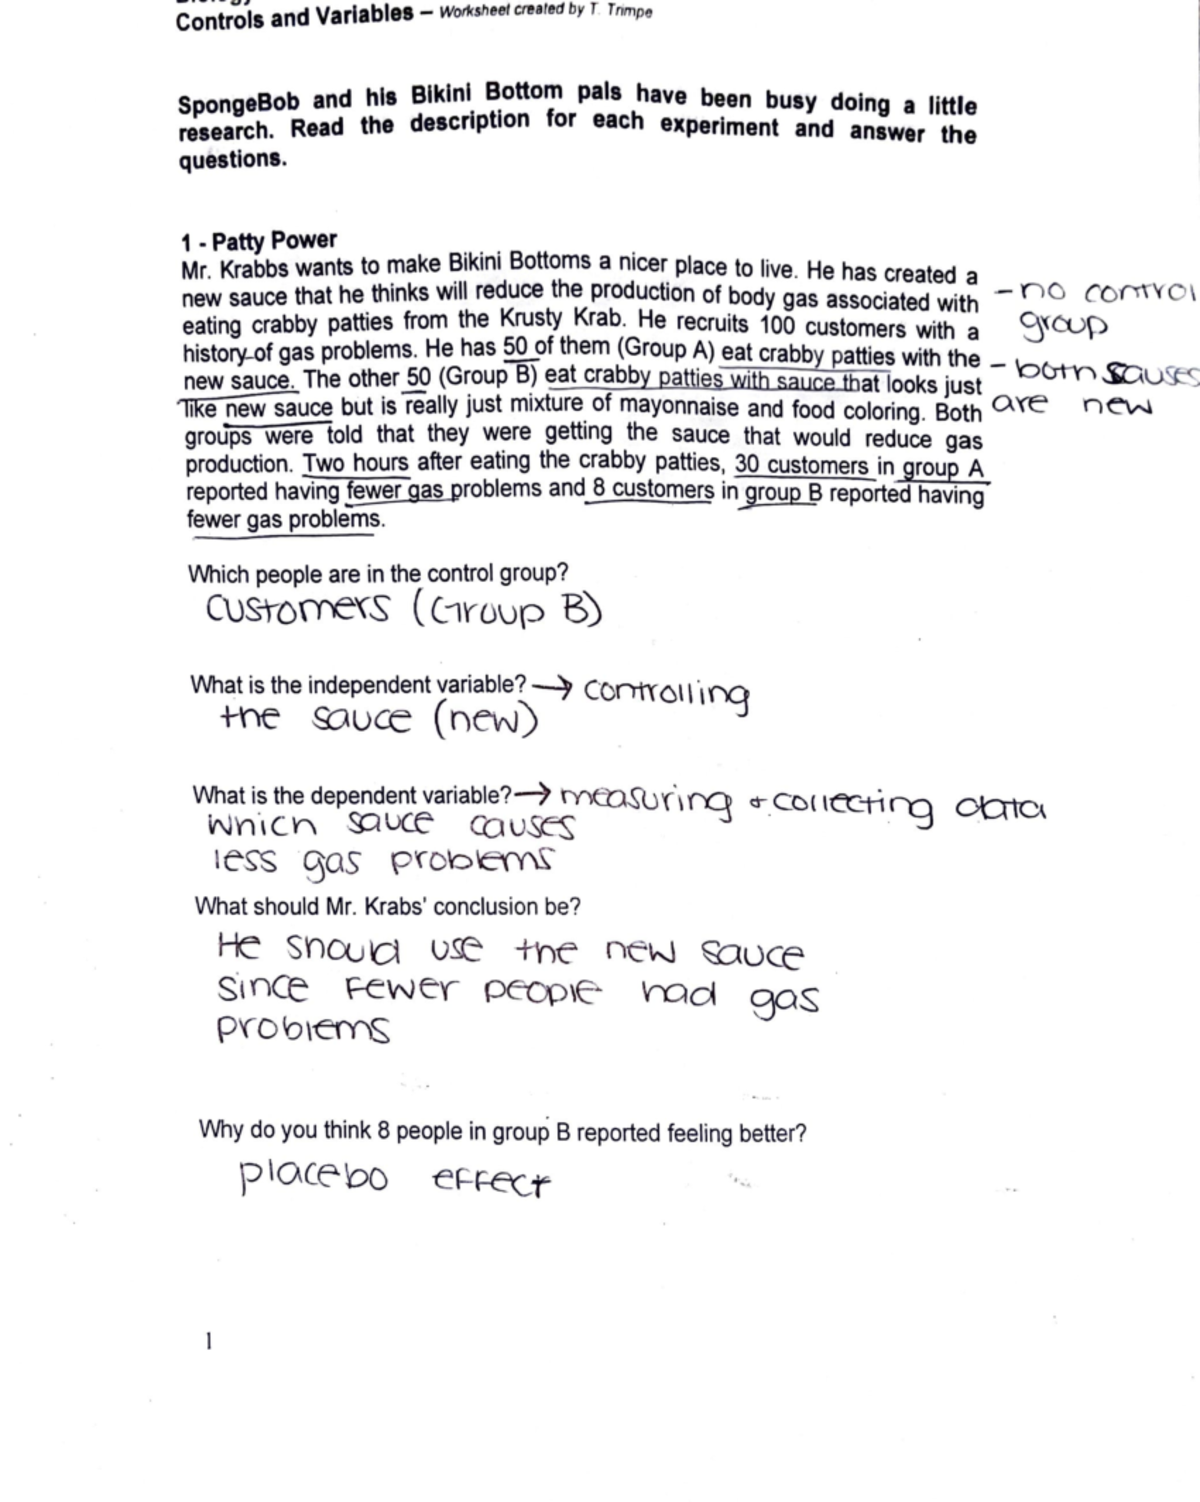 Controls and Variables – Worksheet created by T. Trimpe
SpongeBob and his Bikini Bottom pals have been busy doing a little
research. Read the description for each experiment and answer the
questions.
1 - Patty Power
Mr. Krabbs wants to make Bikini Bottoms a nicer place to live. He has created a
new sauce that he thinks will reduce the production of body gas associated with
eating crabby patties from the Krusty Krab. He recruits 100 customers with a
history of gas problems. He has 50 of them (Group A) eat crabby patties with the
new sauce. The other 50 (Group B) eat crabby patties with sauce that looks just
like new sauce but is really just mixture of mayonnaise and food coloring. Both
groups were told that they were getting the sauce that would reduce gas
production. Two hours after eating the crabby patties, 30 customers in group A
reported having fewer gas problems and 8 customers in group B reported having
fewer gas problems.
- no control
group
- both sauses
are new
Which people are in the control group?
customers (Group B)
What is the independent variable? → controlling
the sauce (new)
What is the dependent variable? → measuring + collecting data
which sauce causes
less gas problems
What should Mr. Krabs' conclusion be?
He should use the new sauce
since fewer people had gas
problems
Why do you think 8 people in group B reported feeling better?
placebo effect
1